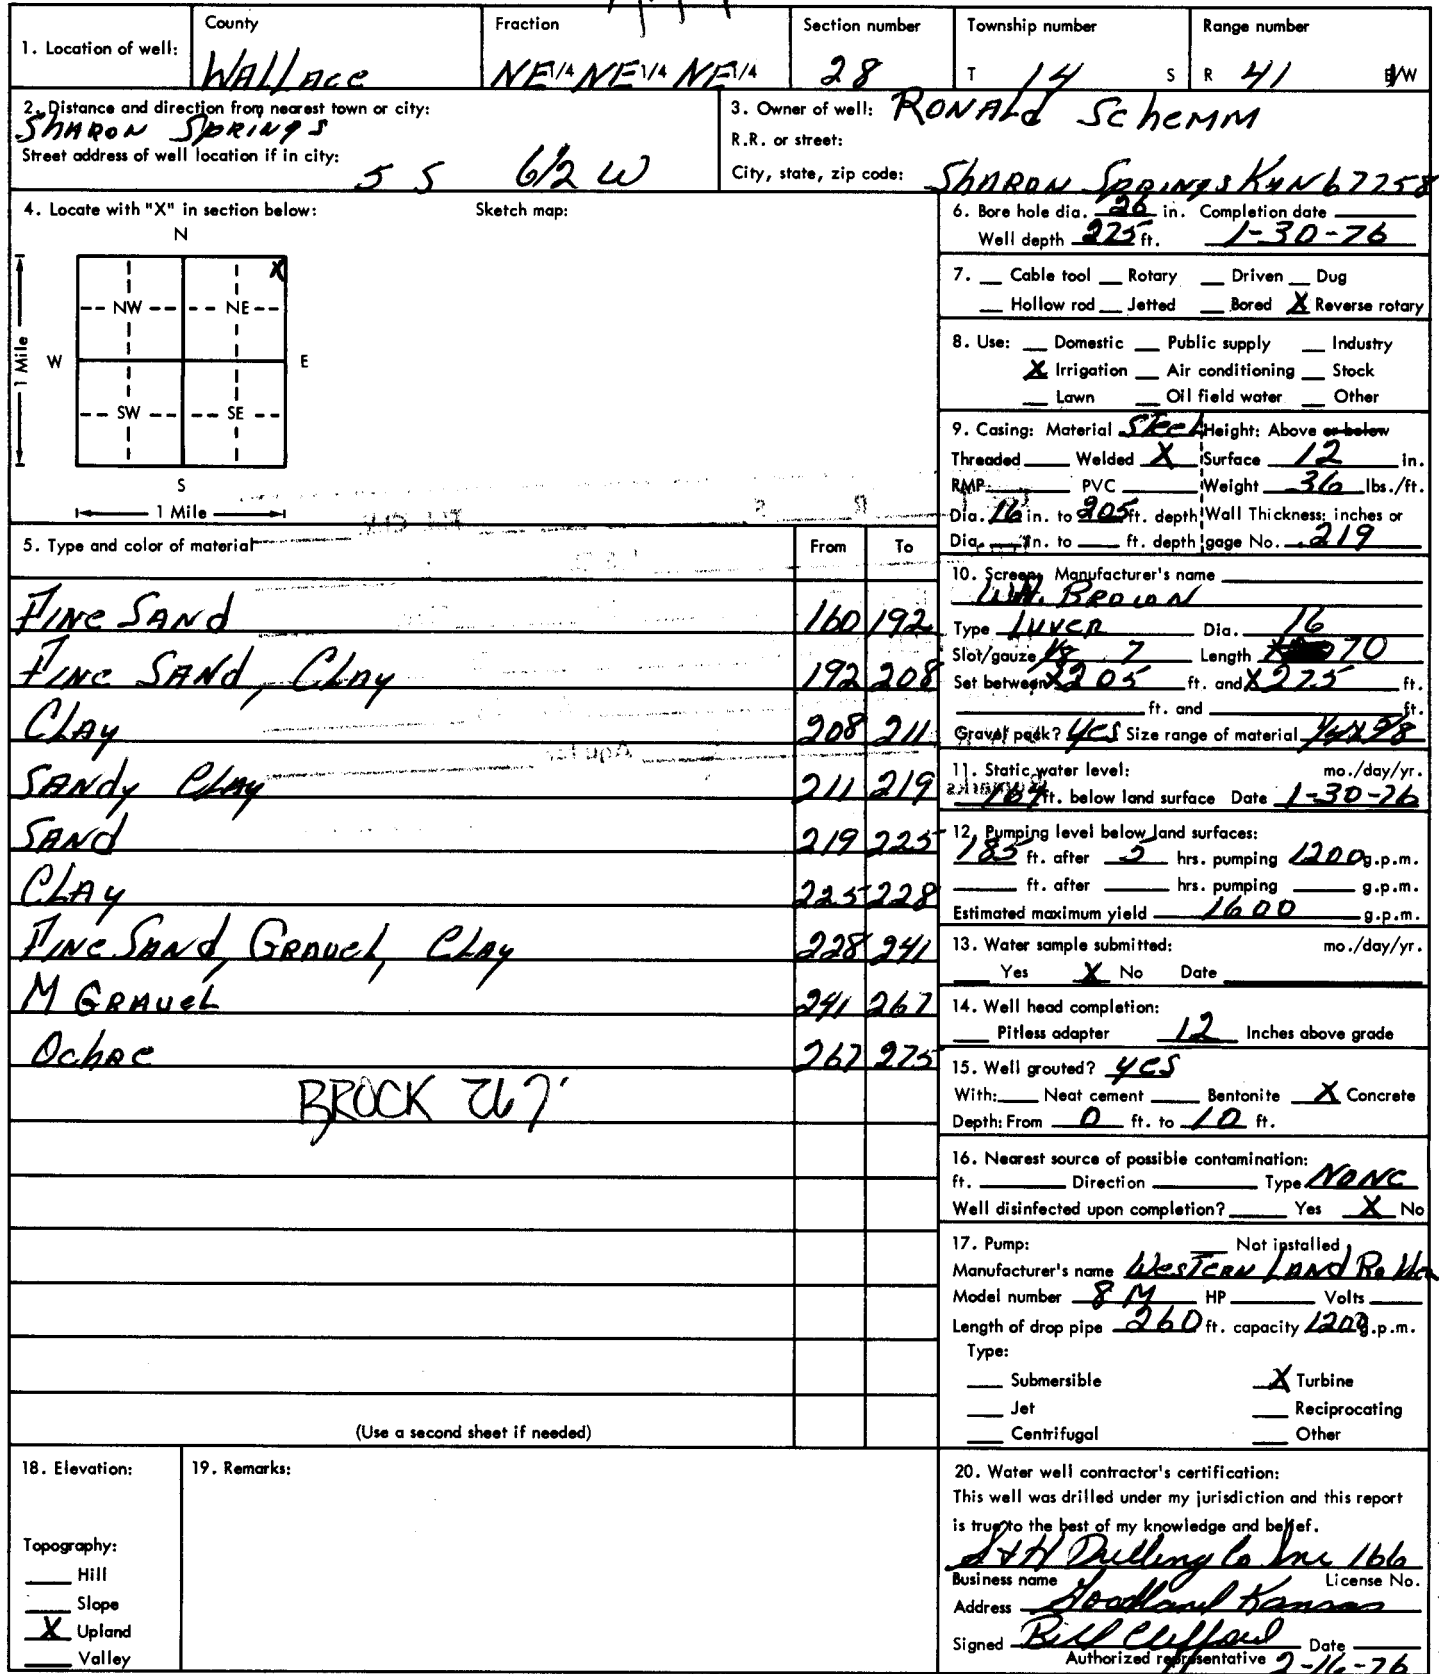 1. Location of well:
County
Wallace
Fraction
NE 1/4 NE 1/4 NE 1/4
Section number
28
Township number
T 14 S
Range number
R 41 E/W
2. Distance and direction from nearest town or city:
Sharon Springs
Street address of well location if in city:
5 S 6 1/2 W
3. Owner of well: Ronald Schemm
R.R. or street:
City, state, zip code: Sharon Springs Kan 67758
4. Locate with "X" in section below:
Sketch map:
N
X
NW NE
W E
SW SE
S
1 Mile
1 Mile
5. Type and color of material From To
Fine Sand 160 192
Fine Sand, Clay 192 208
Clay 208 211
Sandy Clay 211 219
Sand 219 225
Clay 225 228
Fine Sand, Gravel, Clay 228 241
M Gravel 241 267
Ochre 267 275
BROCK 267'
(Use a second sheet if needed)
6. Bore hole dia. 26 in. Completion date
Well depth 275 ft. 1-30-76
7. Cable tool Rotary Driven Dug
Hollow rod Jetted Bored X Reverse rotary
8. Use: Domestic Public supply Industry
X Irrigation Air conditioning Stock
Lawn Oil field water Other
9. Casing: Material Steel Height: Above or below
Threaded Welded X Surface 12 in.
RMP PVC Weight 36 lbs./ft.
Dia. 16 in. to 205 ft. depth Wall Thickness: inches or
Dia. in. to ft. depth gage No. .219
10. Screen: Manufacturer's name
W.H. Brown
Type Luver Dia. 16
Slot/gauze 1/8 7 Length 70
Set between 205 ft. and 275 ft.
ft. and ft.
Gravel pack? Yes Size range of material
11. Static water level: mo./day/yr.
ft. below land surface Date 1-30-76
12. Pumping level below land surfaces:
185 ft. after 5 hrs. pumping 1200 g.p.m.
ft. after hrs. pumping g.p.m.
Estimated maximum yield 1600 g.p.m.
13. Water sample submitted: mo./day/yr.
Yes X No Date
14. Well head completion:
Pitless adapter 12 Inches above grade
15. Well grouted? yes
With: Neat cement Bentonite X Concrete
Depth: From 0 ft. to 10 ft.
16. Nearest source of possible contamination:
ft. Direction Type None
Well disinfected upon completion? Yes X No
17. Pump: Not installed
Manufacturer's name Western Land Roller
Model number 8 M HP Volts
Length of drop pipe 260 ft. capacity 1200 g.p.m.
Type:
Submersible X Turbine
Jet Reciprocating
Centrifugal Other
18. Elevation:
Topography:
Hill
Slope
X Upland
Valley
19. Remarks:
20. Water well contractor's certification:
This well was drilled under my jurisdiction and this report
is true to the best of my knowledge and belief.
S & H Drilling Co Inc 166
Business name License No.
Address Goodland Kansas
Signed Bill Clifford Date
Authorized representative 2-16-76